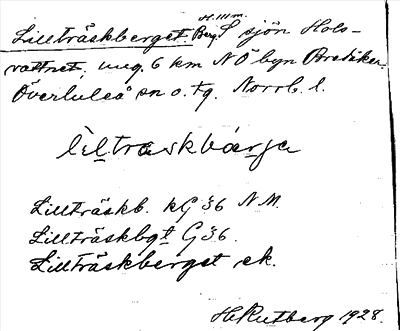 H. III m.
Lillträskberget. Berg S sjön Hols-
vattnet, ung. 6 km NÖ byn Bredåker.
Överluleå sn o. tg. Norrb. l.
lìltraskbárja
Lillträskb. kG 36 N.M.
Lillträskbgt G36.
Lillträskberget ek.
H. Rutberg 1928.